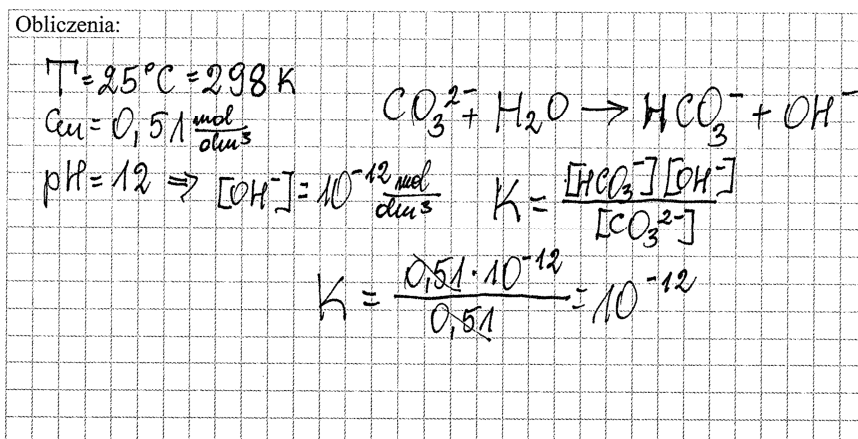 Obliczenia:
T = 25°C = 298 K
Cm = 0,51 mol/dm³
CO₃²⁻ + H₂O → HCO₃⁻ + OH⁻
pH = 12 ⇒ [OH⁻] = 10⁻¹² mol/dm³
K = [HCO₃⁻][OH⁻] / [CO₃²⁻]
K = 0,51 · 10⁻¹² / 0,51 = 10⁻¹²